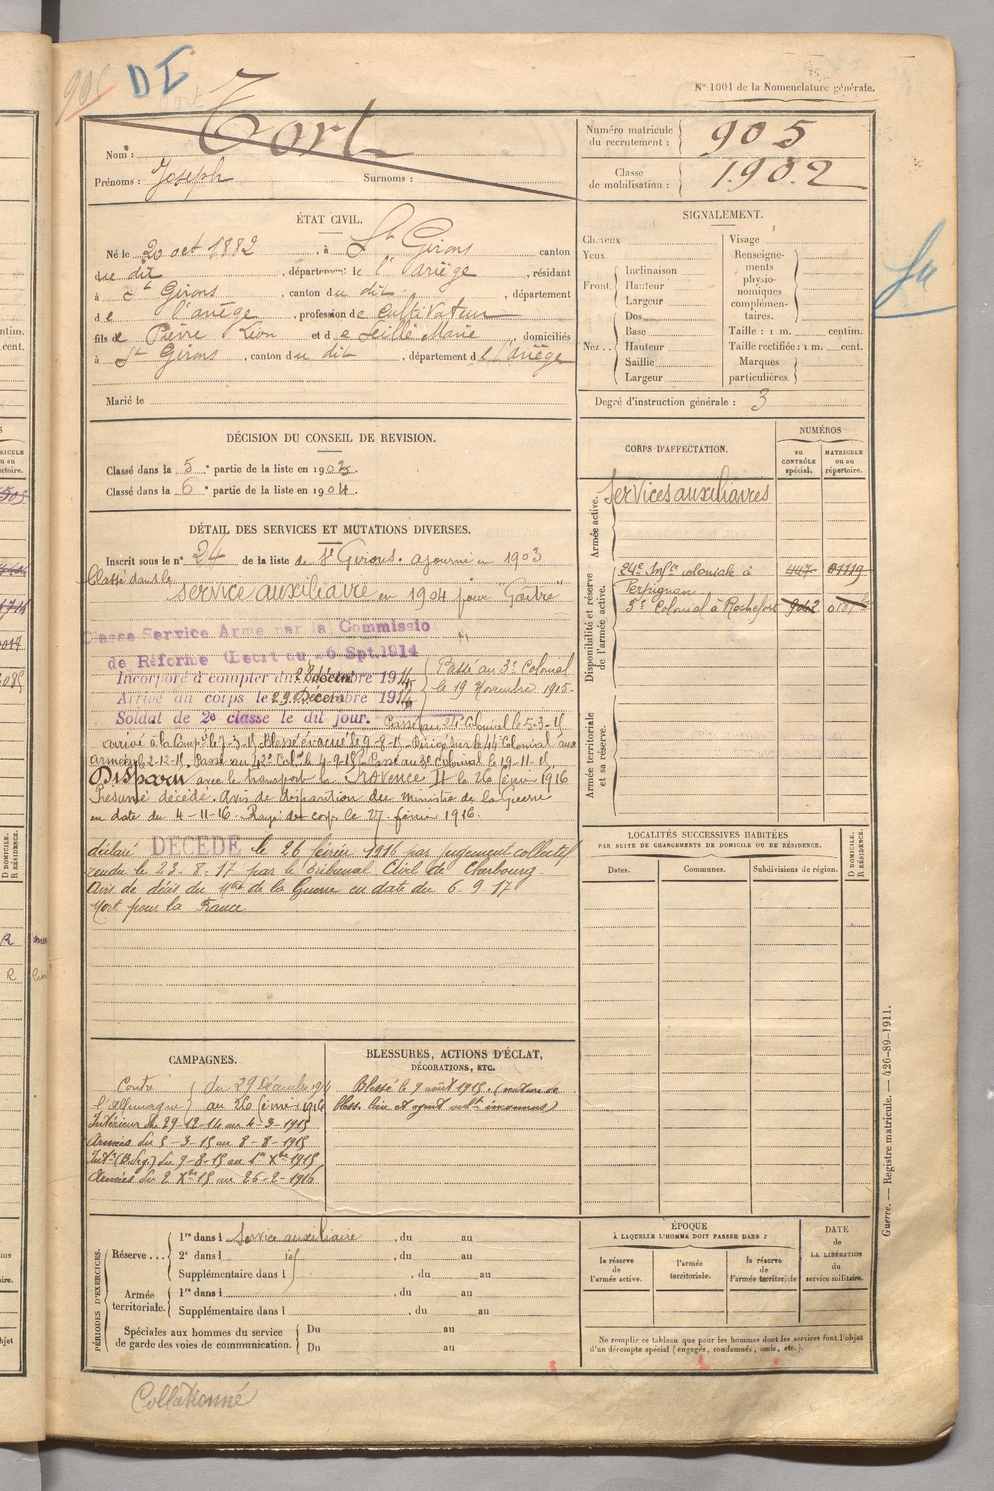 905
DI
N° 1001 de la Nomenclature générale.
Nom : Tort
Prénoms : Joseph Surnoms :
Numéro matricule du recrutement : 905
Classe de mobilisation : 1902
ÉTAT CIVIL.
Né le 20 oct 1882, à St Girons canton
du dit, département de l'Ariège, résidant
à St Girons, canton du dit, département
de l'ariège, profession de cultivateur
fils de Pierre Léon et de Seillé Marie, domiciliés
à St Girons, canton du dit, département de l'Ariège
Marié le
SIGNALEMENT.
Cheveux
Yeux
Front
Inclinaison
Hauteur
Largeur
Nez
Dos
Base
Hauteur
Saillie
Largeur
Visage
Renseignements physionomiques complémentaires.
Taille : 1 m. centim.
Taille rectifiée : 1 m. cent.
Marques particulières.
Degré d'instruction générale : 3
DÉCISION DU CONSEIL DE REVISION.
Classé dans la 5e partie de la liste en 1903.
Classé dans la 6e partie de la liste en 1904.
CORPS D'AFFECTATION.
NUMÉROS
au CONTRÔLE spécial.
MATRICULE ou au répertoire.
Armée active.
Services auxiliaires
Disponibilité et réserve de l'armée active.
24e Infie coloniale à Perpignan 447 01119
3e Colonial à Rochefort
Armée territoriale et sa réserve.
DÉTAIL DES SERVICES ET MUTATIONS DIVERSES.
Inscrit sous le n° 24 de la liste de St Girons. ajourné en 1903
Classé dans le service auxiliaire en 1904 pour "Goître"
Classé Service Armé par la Commissio
de Réforme (Décrt du 26 Spt. 1914
Incorporé à compter du décembre 1914
Arrivé au corps le 29 Décembre 1914
Soldat de 2e classe le dit jour.
Passé au 3e Colonial
le 19 Novembre 1915.
Passé au 24e Colonial le 5-3-15
arrivé à la Compie le 7-3-15. Blessé évacué le 9-8-15. Dirigé sur le 44e Colonial aux
armées le 2-12-15. Passé au 42e Col. le 4-9-15. Passé au 3e colonial le 19-11-15.
Disparu avec le transport la Provence II le 26 février 1916
Présumé décédé. Avis de disparition du ministre de la Guerre
en date du 4-11-16. Rayé des corps le 27 février 1916.
déclaré DÉCÉDÉ le 26 février 1916 par jugement collectif
rendu le 23-8-17 par le Tribunal Civil de Cherbourg.
Avis de décès du Mtre de la Guerre en date du 6-9-17
Mort pour la France
LOCALITÉS SUCCESSIVES HABITÉES
PAR SUITE DE CHANGEMENTS DE DOMICILE OU DE RÉSIDENCE.
Dates. Communes. Subdivisions de région.
D DOMICILE.
R RÉSIDENCE.
CAMPAGNES.
Contre l'Allemagne du 29 Décembre 1914 au 26 février 1916
Intérieur du 29-12-14 au 4-3-1915
Armées du 5-3-15 au 8-8-1915
Intr (Bl. g.) du 9-8-15 au 1er Xbre 1915
Armées du 2 Xbre 15 au 26-2-1916
BLESSURES, ACTIONS D'ÉCLAT,
DÉCORATIONS, ETC.
Blessé le 9 août 1915. (nature de
bless. lieu et agent inconnus)
PÉRIODES D'EXERCICES.
Réserve... 1re dans l Service auxiliaire, du au
2e dans l id, du au
Supplémentaire dans l, du au
Armée territoriale. 1re dans l, du au
Supplémentaire dans l, du au
Spéciales aux hommes du service de garde des voies de communication.
Du au
Du au
ÉPOQUE
À LAQUELLE L'HOMME DOIT PASSER DANS :
la réserve de l'armée active.
l'armée territoriale.
la réserve de l'armée territoriale
DATE de LA LIBÉRATION du service militaire.
Ne remplir ce tableau que pour les hommes dont les services font l'objet
d'un décompte spécial (engagés, condamnés, omis, etc.).
Guerre. — Registre matricule. — 426-89-1911.
Collationné